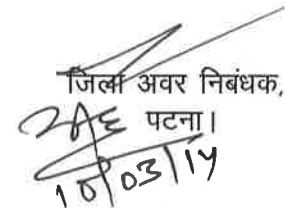 जिला अवर निबंधक,
पटना।
10/03/14